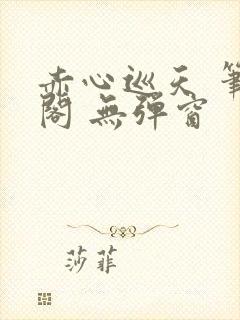 赤心巡天 筆
閣 無彈窗
莎菲